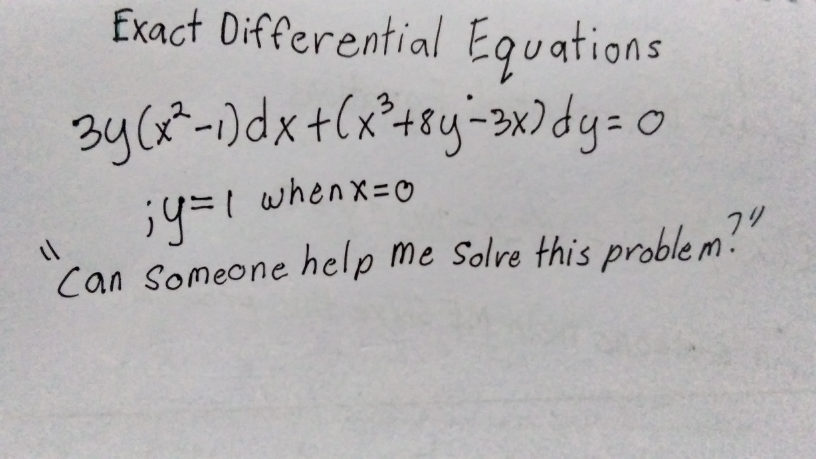 Exact Differential Equations
3y(x²-1)dx+(x³+8y-3x)dy=0
;y=1 when x=0
"Can someone help me solve this problem?"